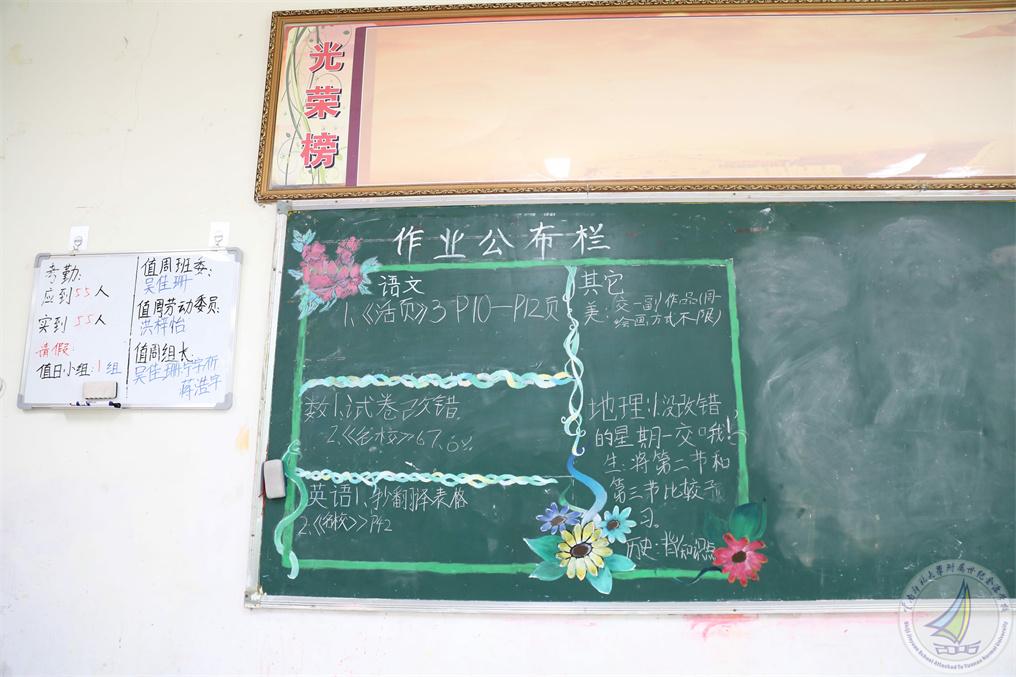 光荣榜
考勤:
应到55人
实到55人
请假:
值日小组:1组
值周班委:
吴佳珊
值周劳动委员:
洪梓怡
值周组长:
吴佳珊
蒋浩宇
作业公布栏
语文
1.《活页》3 P10—P12页
数1.试卷改错
2.《名校》67.68
英语1.抄翻译表格
2.《名校》P42
其它
美:交一副作品(周一
绘画方式不限)
地理:没改错
的星期一交哦!
生:将第二节和
第三节比较
习。
历史:背知识点
Shiji Jinyuan School Attached To Yunnan Normal University